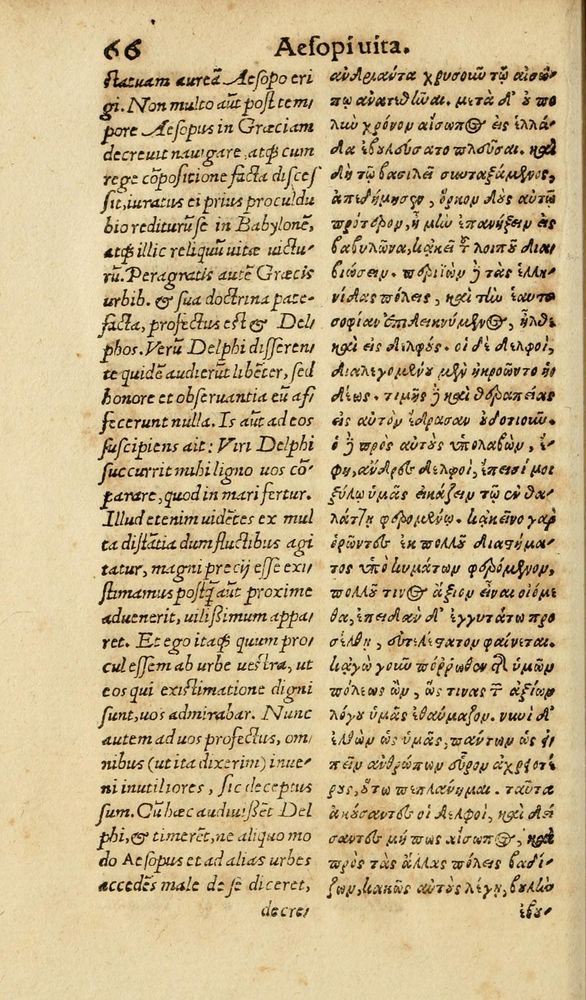 66 Aesopi vita.
statuam aureā Aesopo eri
gi. Non multo aūt post tem/
pore Aesopus in Græciam
decreuit nauigare, atq; cum
rege cōpositione facta disces
sit, iuratus ei prius proculdu
bio rediturũ se in Babylonē,
atq; illic reliquũ uitæ uictu/
rũ. Peragratis autē Græcis
urbib. & sua doctrina pate/
facta, profectus est & Del/
phos. Verũ Delphi disseren/
te quidē audierũt libēter, sed
honore et obseruantia eũ afi
fecerunt nulla. Is aũt ad eos
suscipiens ait: Viri Delphi
succurrit mihi ligno uos cō/
parare, quod in mari fertur.
Illud etenim uidētes ex mul
ta distātia dum fluctibus agi
tatur, magni precij esse exi/
stimamus postq̄ aũt proxime
aduenerit, uilissimum appa/
ret. Et ego itaq; quum pro/
cul essem ab urbe uestra, ut
eos qui existimatione digni
sunt, uos admirabar. Nunc
autem ad uos profectus, om/
nibus (ut ita dixerim) inue/
ni inutiliores, sic deceptus
sum. Cũ hæc audiuissēt Del
phi, & timerēt, ne aliquo mo
do Aesopus et ad alias urbes
accedēs male de se diceret,
decre/
ἀνδριάντα χρυσοῦν τῷ αἰσώ-
πῳ ἀνατεθῆναι. μετὰ δ' οὐ πο
λὺν χρόνον αἴσωπος εἰς ἑλλά-
δα ἐβουλεύσατο πλεῦσαι. καὶ
δὴ τῷ βασιλεῖ συνταξάμενος,
ἀπεδήμησεν, ὅρκον δοὺς αὐτῷ
πρότερον, ἦ μὴν ἐπανήξειν εἰς
βαβυλῶνα, κἀκεῖ τὸν λοιπὸν δια-
βιώσειν. περιϊὼν δὲ τὰς ἑλλη-
νίδας πόλεις, καὶ τὴν ἑαυτοῦ
σοφίαν ἐπιδεικνύμενος, ἦλθε
καὶ εἰς δελφούς. οἱ δὲ δελφοὶ,
διαλεγομένου μὲν ἠκροῶντο ἡ-
δέως. τιμῆς δὲ καὶ θεραπείας
εἰς αὐτὸν ἔδρασαν οὐδοτιοῦν.
ὁ δὲ πρὸς αὐτοὺς ὑπολαβὼν, ἔ-
φη, ἄνδρες δελφοὶ, ἔπεισί μοι
ξύλῳ ὑμᾶς εἰκάζειν τῷ ἐν θα-
λάττῃ φερομένῳ. κἀκεῖνο γὰρ
ὁρῶντες ἐκ πολλοῦ διαστήμα-
τος ὑπὸ κυμάτων φερόμενον,
πολλοῦ τινος ἄξιον εἶναι οἰόμε
θα, ἐπειδὰν δ' ἐγγυτάτω προ
σέλθῃ, εὐτελέστατον φαίνεται.
κἀγὼ γοῦν πόῤῥωθεν τῆς ὑμῶν
πόλεως ὢν, ὥς τινας τῶν ἀξίων
λόγου ὑμᾶς ἐθαύμαζον. νυνὶ δ'
ἐλθὼν ὡς ὑμᾶς, πάντων ὡς εἰ
πεῖν ἀνθρώπων εὗρον ἀχρειοτέ
ρους, οὕτω πεπλάνημαι. ταῦτα
ἀκούσαντες οἱ δελφοὶ, καὶ δεί
σαντες μή πως αἴσωπος, καὶ
πρὸς τὰς ἄλλας πόλεις βαδί-
ζων, κακῶς αὐτοὺς λέγῃ, βουλὴν
ἐβου-